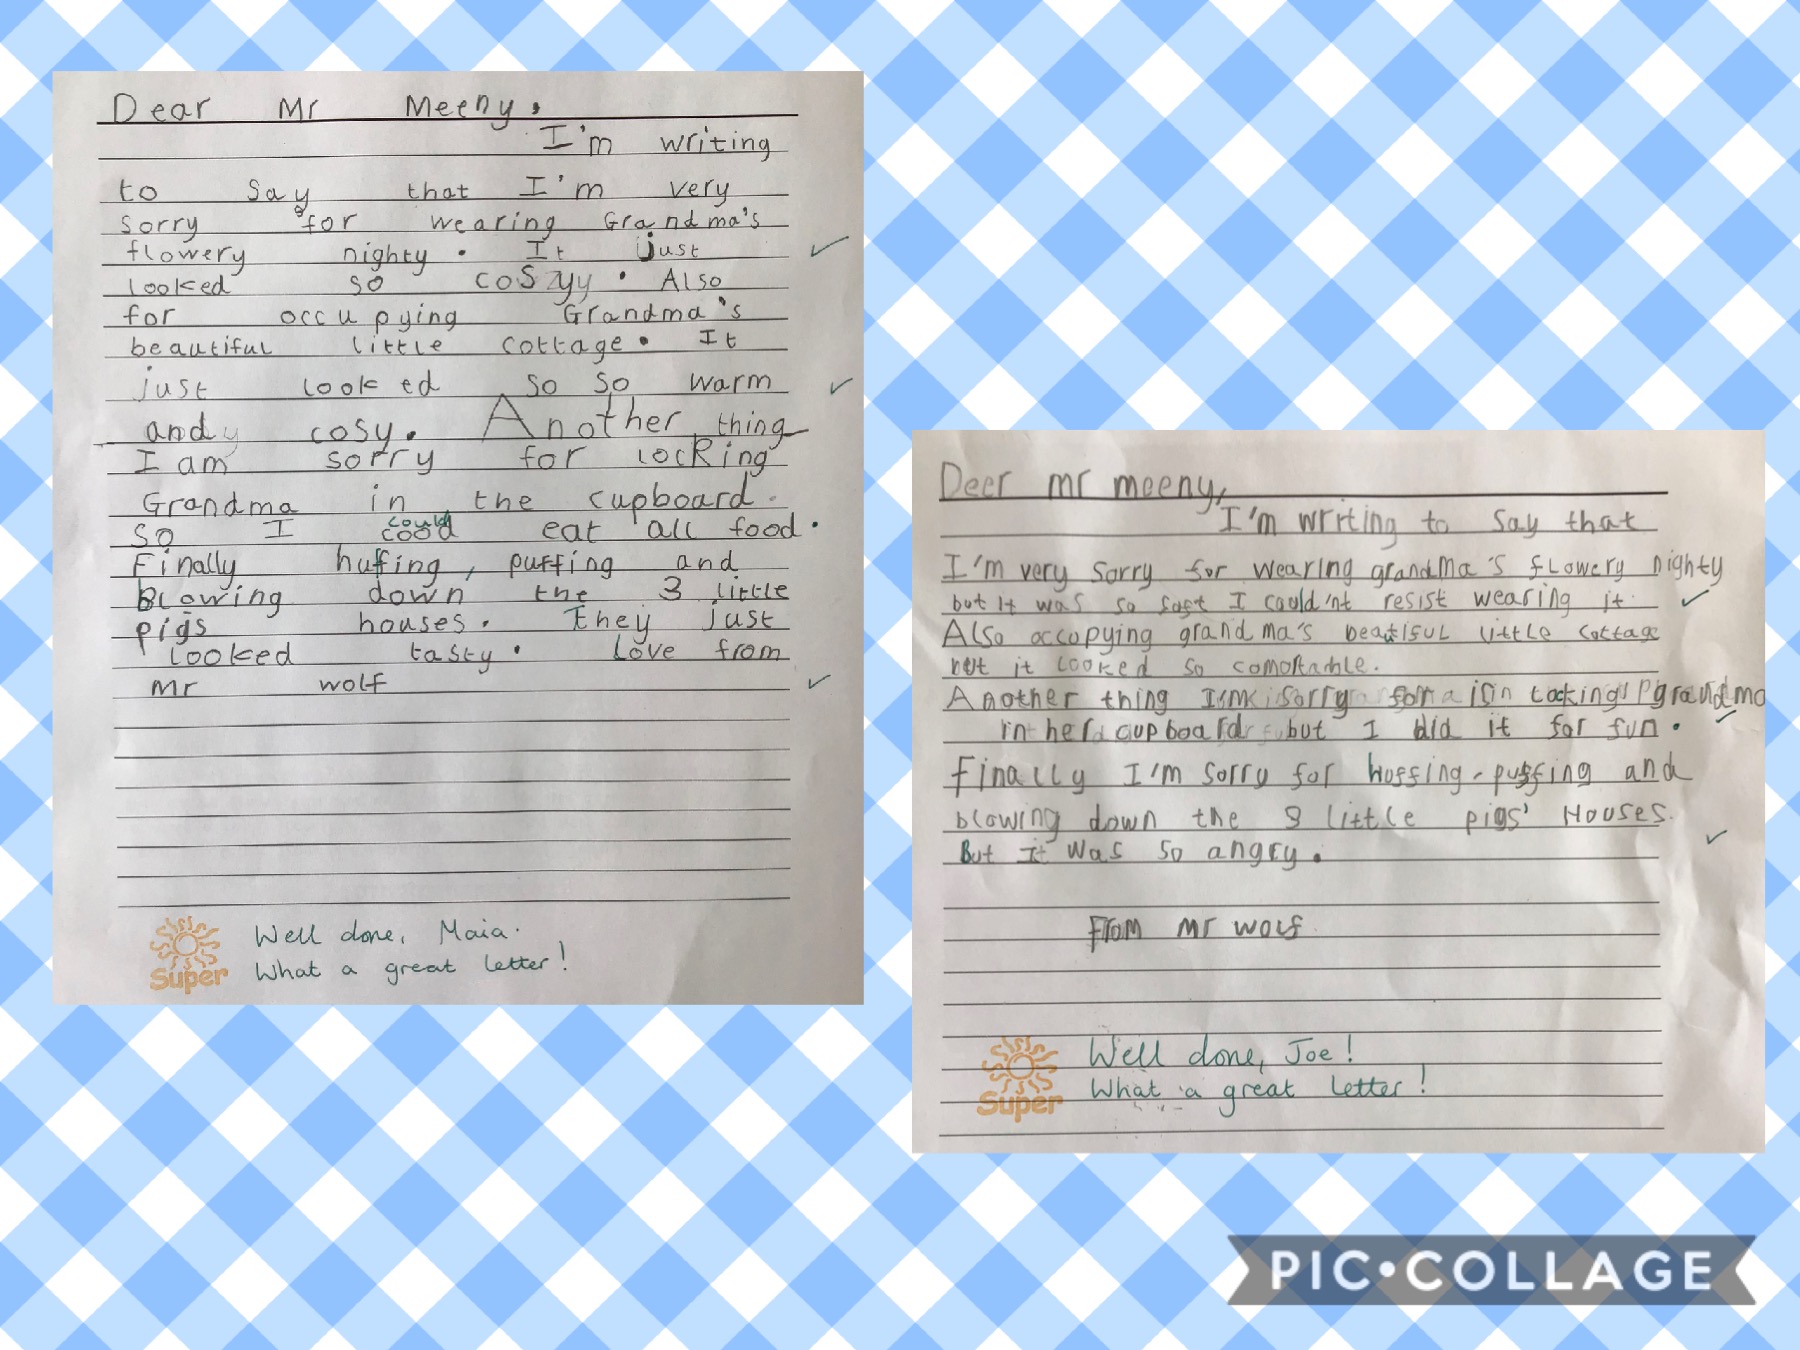 Dear Mr Meeny,
I'm writing
to say that I'm very
sorry for wearing Grandma's
flowery nighty. It just
looked so coszyy. Also
for occupying Grandma's
beautiful little cottage. It
just looked so so warm
andy cosy. Another thing
I am sorry for locking
Grandma in the cupboard.
so I could eat all food.
Finally huffing, puffing and
Blowing down the 3 little
pigs houses. They just
looked tasty. Love from
Mr wolf
Super
Well done, Maia.
What a great letter!
Deer mr meeny,
I'm writing to say that
I'm very sorry for wearing grandma's flowery nighty
but it was so soft I could'nt resist wearing it.
Also occupying grandma's beautiful little cottage
but it looked so
Another thing I'm sorry for locking grandma
in her cupboard but I did it for fun.
Finally I'm sorry for huffing, puffing and
blowing down the 3 little pigs' Houses.
But it was so angry.
From Mr wolf
Super
Well done, Joe!
What a great letter!
PIC•COLLAGE